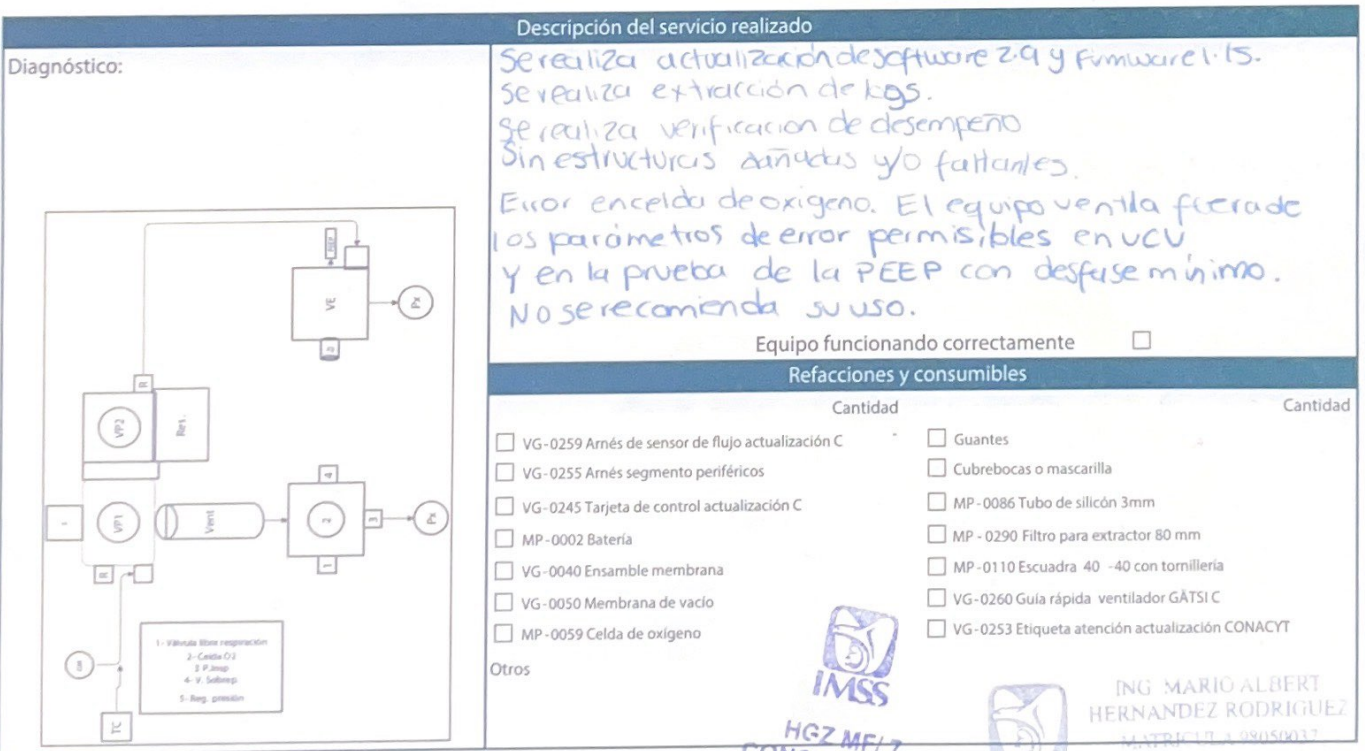 Descripción del servicio realizado
Diagnóstico:
Se realiza actualización de software 2.9 y firmware 1.15.
Se realiza extracción de logs.
Se realiza verificacion de desempeño
Sin estructuras dañadas y/o faltantes.
Error en celda de oxigeno. El equipo ventila fuera de
los parámetros de error permisibles en VCV
Y en la prueba de la PEEP con desfase mínimo.
No se recomienda su uso.
Equipo funcionando correctamente
VE
Px
R
VP2
Res.
VP1
Vent
4
2
3
Px
1
R
TC
1- Válvula libre respiración
2- Celda O2
3 P.Insp
4- V. Sobrep.
5- Reg. presión
Refacciones y consumibles
Cantidad
Cantidad
VG-0259 Arnés de sensor de flujo actualización C
VG-0255 Arnés segmento periféricos
VG-0245 Tarjeta de control actualización C
MP-0002 Batería
VG-0040 Ensamble membrana
VG-0050 Membrana de vacío
MP-0059 Celda de oxígeno
Otros
Guantes
Cubrebocas o mascarilla
MP-0086 Tubo de silicón 3mm
MP - 0290 Filtro para extractor 80 mm
MP-0110 Escuadra 40 -40 con tornillería
VG-0260 Guía rápida ventilador GÄTSI C
VG-0253 Etiqueta atención actualización CONACYT
IMSS
HGZ MF
ING MARIO ALBERT
HERNANDEZ RODRIGUEZ
MATRICULA 98050037